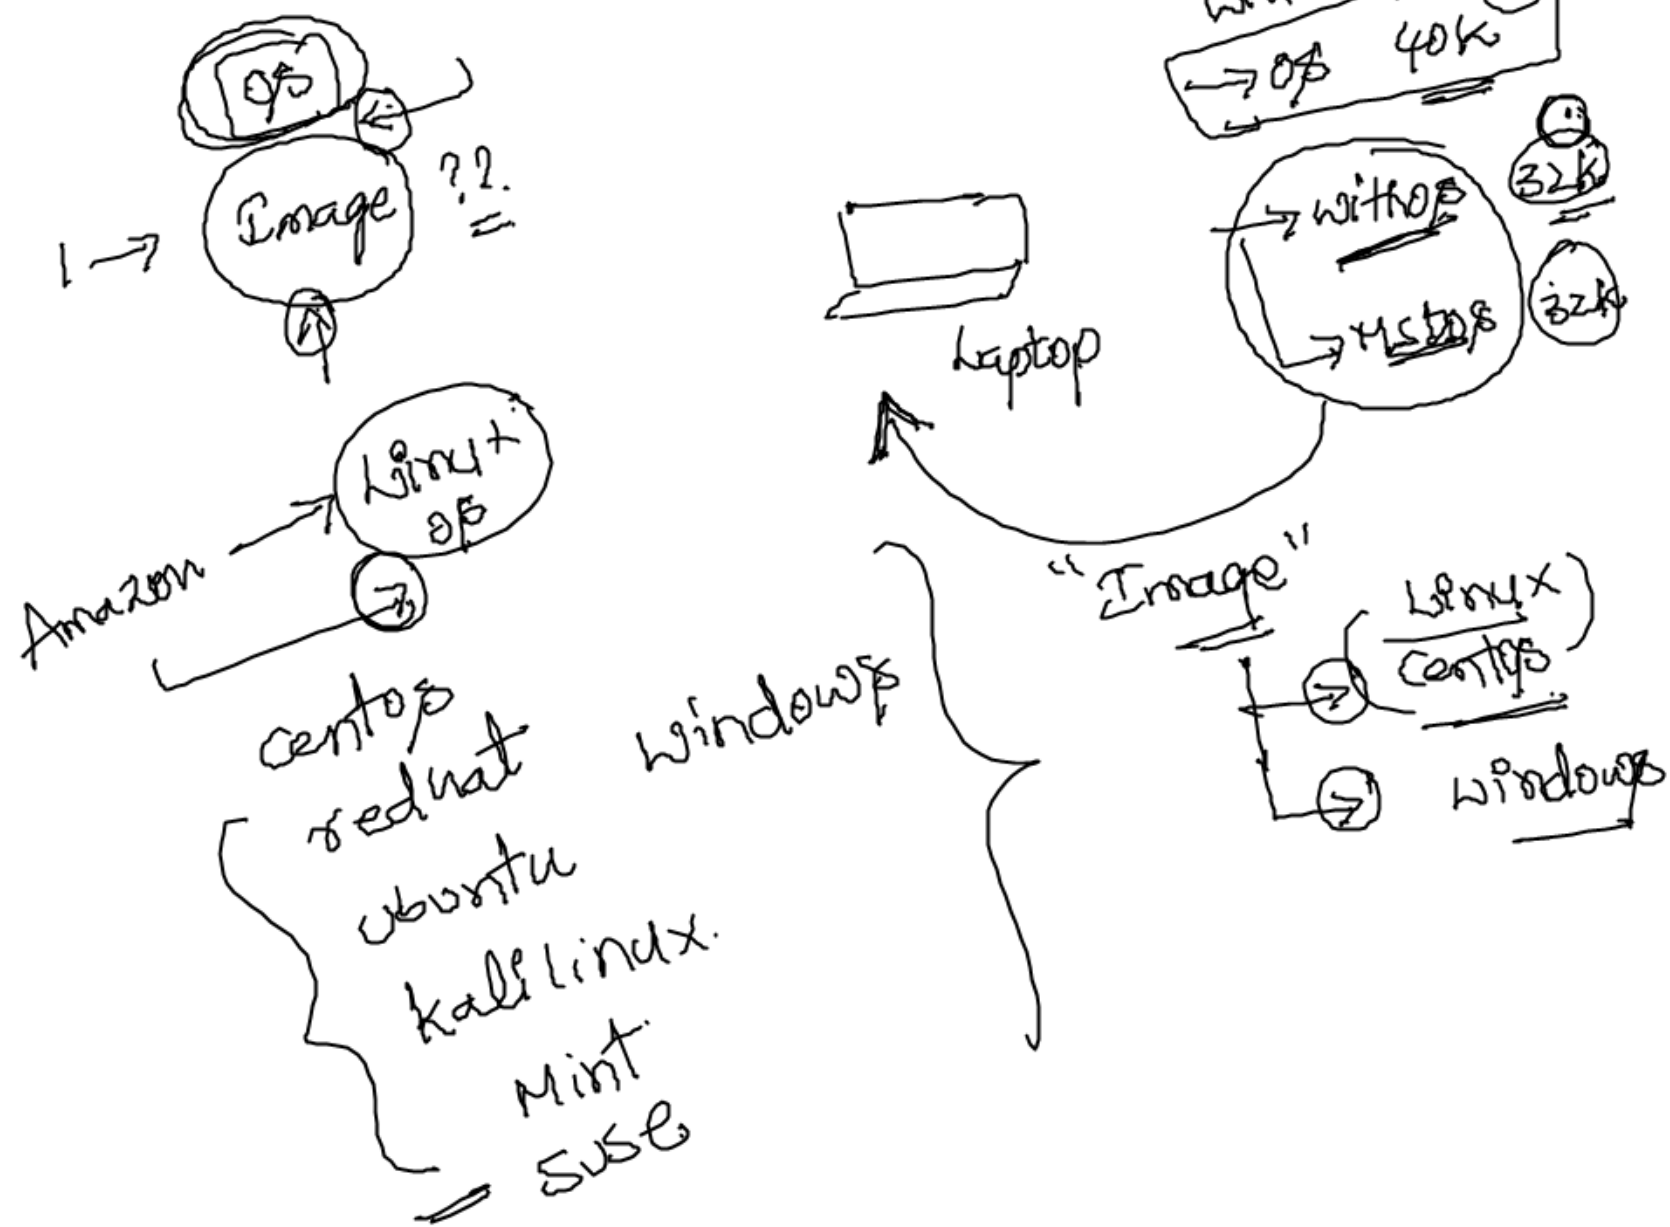 OS
Image
??
1
Linux
OS
Amazon
centos
redhat
ubuntu
kali linux.
Mint
suse
windows
Laptop
OS 40K
with OS
32K
32K
"Image"
Linux
centos
windows